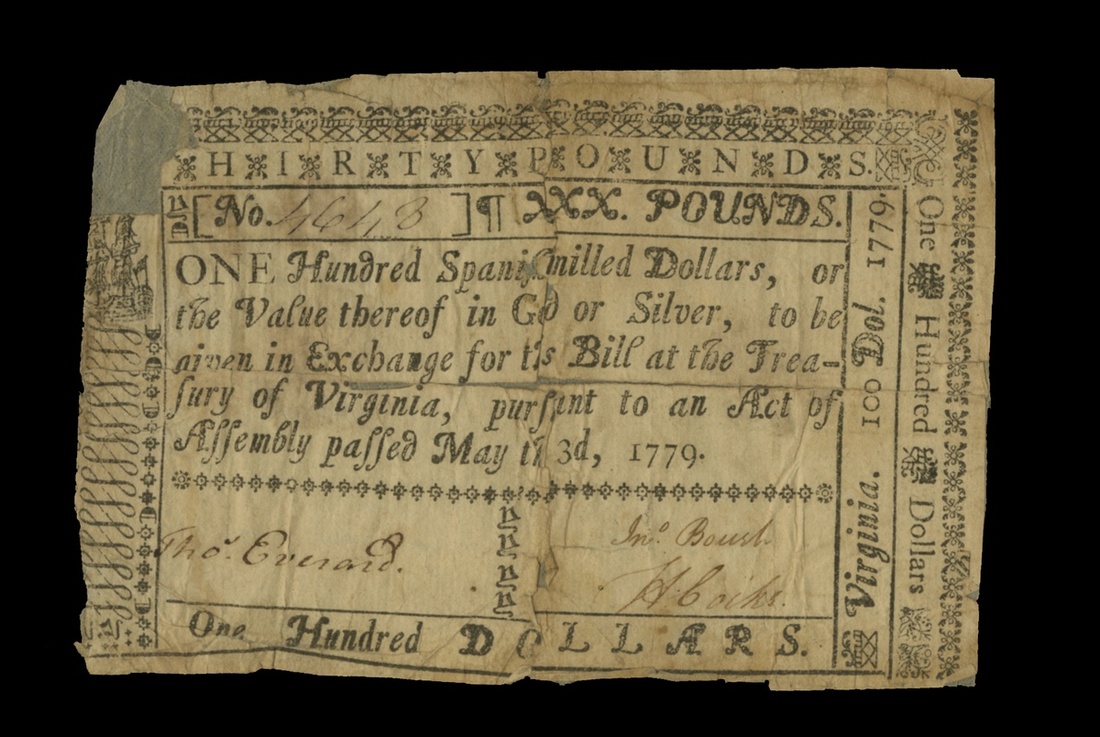 HIRTY POUNDS.
[No. 4643 ]¶ XXX. POUNDS.
ONE Hundred Spaniſ milled Dollars, or
the Value thereof in G d or Silver, to be
given in Exchange for t s Bill at the Trea-
ſury of Virginia, purſ ant to an Act of
Aſſembly paſſed May t 3d, 1779.
Thos. Everard.
Jno. Boush
H Cocke.
One Hundred DOLLARS.
Virginia. 100 Dol. 1779
One Hundred Dollars